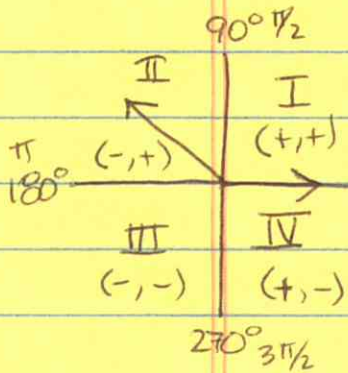 90° π/2
II
I
(-,+)
(+,+)
π
180°
III
IV
(-,-)
(+,-)
270° 3π/2